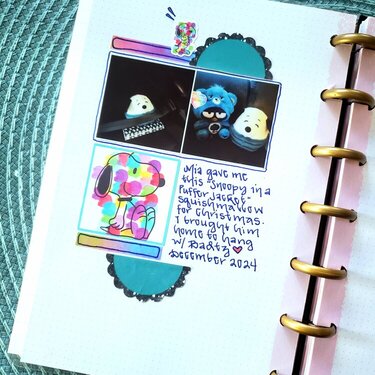 Mia gave me
this "Snoopy in a
Puffer Jacket"
Squishmallow
for Christmas.
I brought him
home to hang
w/ Badtz
December 2024